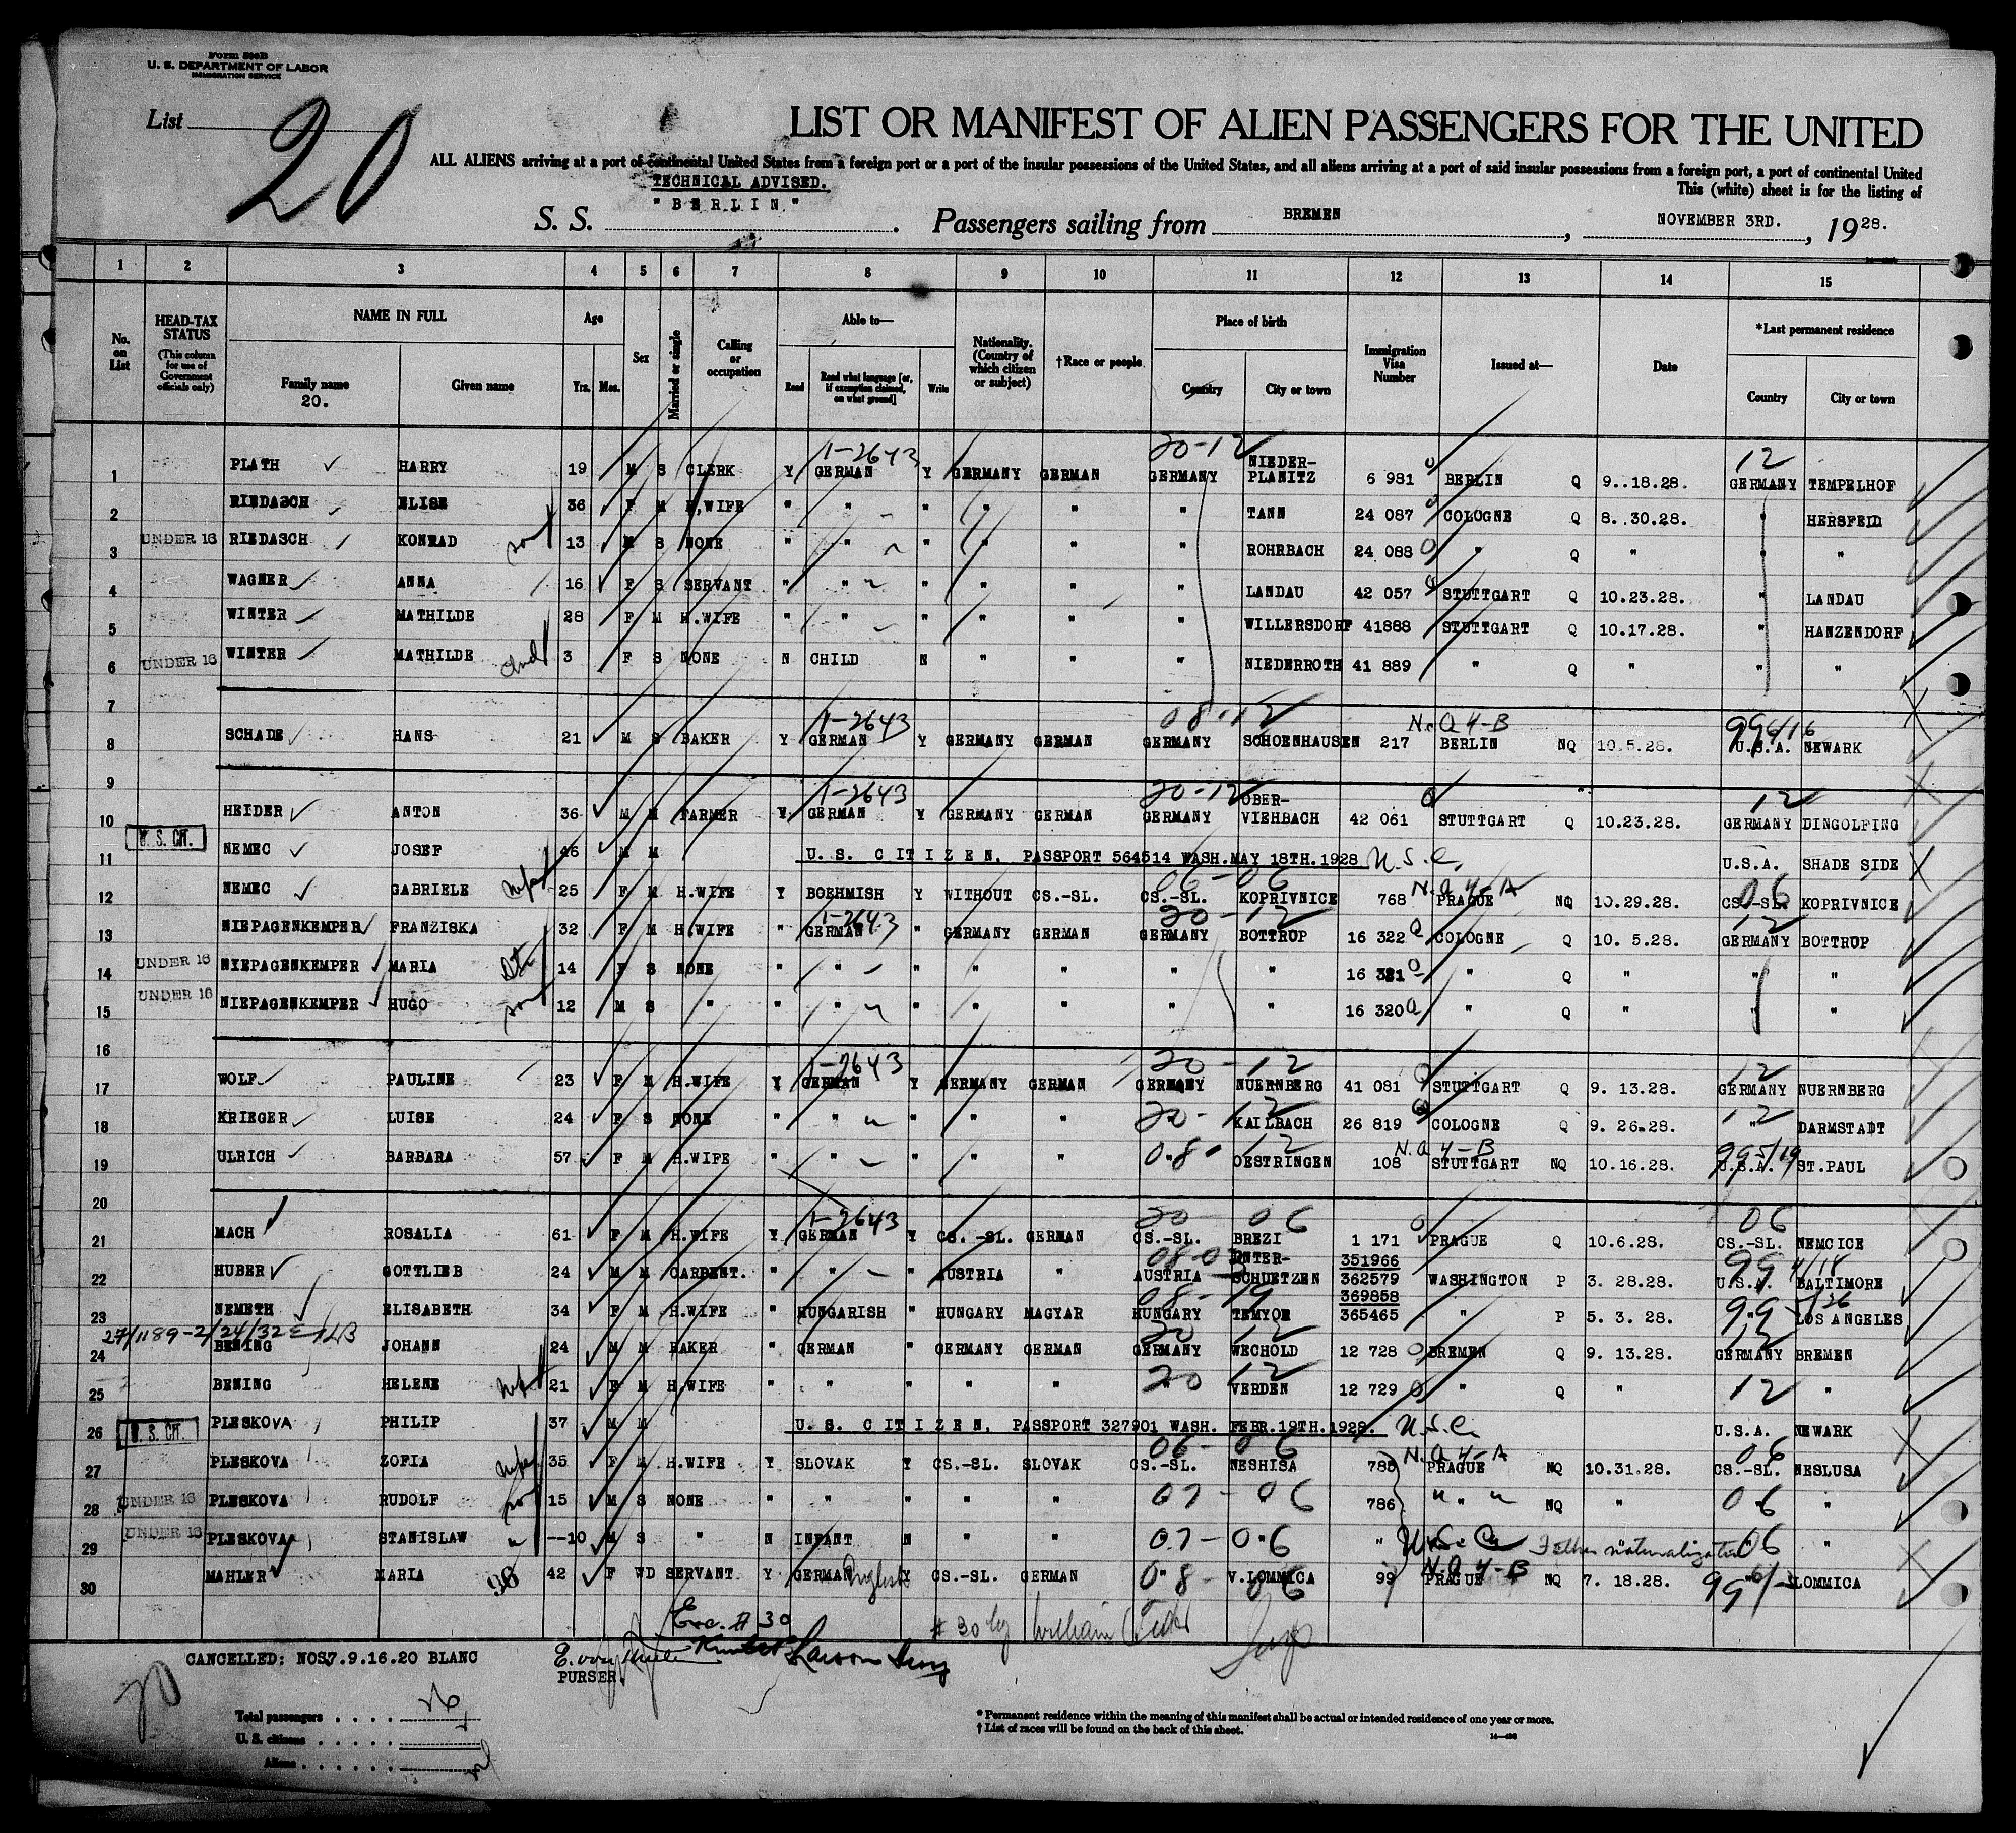 Form 500B
U. S. DEPARTMENT OF LABOR
IMMIGRATION SERVICE
List 20
LIST OR MANIFEST OF ALIEN PASSENGERS FOR THE UNITED
ALL ALIENS arriving at a port of continental United States from a foreign port or a port of the insular possessions of the United States, and all aliens arriving at a port of said insular possessions from a foreign port, a port of continental United
TECHNICAL ADVISED.
This (white) sheet is for the listing of
S. S. "BERLIN". Passengers sailing from BREMEN, NOVEMBER 3RD., 1928.
1 2 3 4 5 6 7 8 9 10 11 12 13 14 15
No. on List
HEAD-TAX STATUS (This column for use of Government officials only)
NAME IN FULL
Family name 20.
Given name
Age Yrs. Mos.
Sex
Married or single
Calling or occupation
Able to— Read Read what language [or, if exemption claimed, on what ground] Write
Nationality. (Country of which citizen or subject)
†Race or people
Place of birth Country City or town
Immigration Visa Number
Issued at—
Date
*Last permanent residence Country City or town
1-2643 20-12 12
1 PLATH HARRY 19 M S CLERK Y GERMAN Y GERMANY GERMAN GERMANY NIEDER-PLANITZ 6 981 BERLIN Q 9..18.28. GERMANY TEMPELHOF
2 RIEDASCH ELISE 36 F M H.WIFE " " " " " " TANN 24 087 COLOGNE Q 8..30.28. " HERSFELD
3 UNDER 16 RIEDASCH KONRAD son 13 M S NONE " " " " " " ROHRBACH 24 088 " Q " " "
4 WAGNER ANNA 16 F S SERVANT " " " " " " LANDAU 42 057 STUTTGART Q 10.23.28. " LANDAU
5 WINTER MATHILDE 28 F M H.WIFE " " " " " " WILLERSDORF 41888 STUTTGART Q 10.17.28. " HANZENDORF
6 UNDER 16 WINTER MATHILDE 3 F S NONE N CHILD N " " " NIEDERROTH 41 889 " Q " " "
7
1-2643 08-12 N.Q 4-B 99
8 SCHADE HANS 21 M S BAKER Y GERMAN Y GERMANY GERMAN GERMANY SCHOENHAUSEN 217 BERLIN NQ 10.5.28. U.S.A. NEWARK
9
1-2643 20-12 12
10 HEIDER ANTON 36 M M FARMER Y GERMAN Y GERMANY GERMAN GERMANY OBER-VIEHBACH 42 061 STUTTGART Q 10.23.28. GERMANY DINGOLFING
11 U. S. CIT. NEMEC JOSEF 46 M M U. S. CITIZEN. PASSPORT 564514 WASH.MAY 18TH.1928 U.S.C. U.S.A. SHADE SIDE
06-06 N.Q 4-A 06
12 NEMEC GABRIELE 25 F M H.WIFE Y BOEHMISH Y WITHOUT CS.-SL. CS.-SL. KOPRIVNICE 768 PRAGUE NQ 10.29.28. CS.-SL. KOPRIVNICE
1-2643 20-12 12
13 NIEPAGENKEMPER FRANZISKA 32 F M H.WIFE " GERMAN " GERMANY GERMAN GERMANY BOTTROP 16 322 COLOGNE Q 10. 5.28. GERMANY BOTTROP
14 UNDER 16 NIEPAGENKEMPER MARIA 14 F S NONE " " " " " " " 16 321 " Q " " "
15 UNDER 16 NIEPAGENKEMPER HUGO son 12 M S " " " " " " " " 16 320 " Q " " "
16
1-2643 20-12 12
17 WOLF PAULINE 23 F M H.WIFE Y GERMAN Y GERMANY GERMAN GERMANY NUERNBERG 41 081 STUTTGART Q 9. 13.28. GERMANY NUERNBERG
20-12 12
18 KRIEGER LUISE 24 F S NONE " " " " " " KAILBACH 26 819 COLOGNE Q 9. 26.28. " DARMSTADT
08 12 N.Q 4-B 99 5/19
19 ULRICH BARBARA 57 F M H.WIFE " " " " " " OESTRINGEN 108 STUTTGART NQ 10.16.28. U.S.A. ST.PAUL
20
1-2643 20 06 06
21 MACH ROSALIA 61 F M H.WIFE Y GERMAN Y CS.-SL. GERMAN CS.-SL. BREZI 1 171 PRAGUE Q 10.6.28. CS.-SL. NEMCICE
08-03 99 4/18
22 HUBER GOTTLIEB 24 M M CARPENT. " " " AUSTRIA " AUSTRIA UNTER-SCHUETZEN 351966 362579 WASHINGTON P 3. 28.28. U.S.A. BALTIMORE
08-19 99 5/26
23 NEMETH ELISABETH 34 F M H.WIFE " HUNGARISH " HUNGARY MAGYAR HUNGARY TEMYOE 369858 365465 " P 5. 3. 28. LOS ANGELES
27/1189-2/24/32 20 12 12
24 BENING JOHANN 24 M M BAKER " GERMAN " GERMANY GERMAN GERMANY WECHOLD 12 728 BREMEN Q 9. 13.28. GERMANY BREMEN
20 12 12
25 BENING HELENE 21 F M H.WIFE " " " " " " VERDEN 12 729 " Q " "
26 U. S. CIT. PLESKOVA PHILIP 37 M M U. S. CITIZEN. PASSPORT 327901 WASH. FEBR.19TH.1928. U.S.C. U.S.A. NEWARK
06-06 N.Q 4-A 06
27 PLESKOVA ZOFIA 35 F M H.WIFE Y SLOVAK Y CS.-SL. SLOVAK CS.-SL. NESHISA 785 PRAGUE NQ 10.31.28. CS.-SL. NESLUSA
28 UNDER 16 PLESKOVA RUDOLF son 15 M S NONE " " " " " 07-06 786 " " " NQ " 06 "
29 UNDER 16 PLESKOVA STANISLAW " --10 M S " N INFANT N " " 07-06 " U.S.C. Father naturalization 06 "
30 MAHLER MARIA 96 42 F WD SERVANT Y GERMAN English Y CS.-SL. GERMAN 08-06 V.LOMMICA 99 N.Q 4-B PRAGUE NQ 7. 18.28. 99 LOMMICA
Exc. # 30
# 30 by William
CANCELLED: NOS7.9.16.20 BLANC
PURSER.
20
Total passengers
U. S. citizens
Aliens
* Permanent residence within the meaning of this manifest shall be actual or intended residence of one year or more.
† List of races will be found on the back of this sheet.